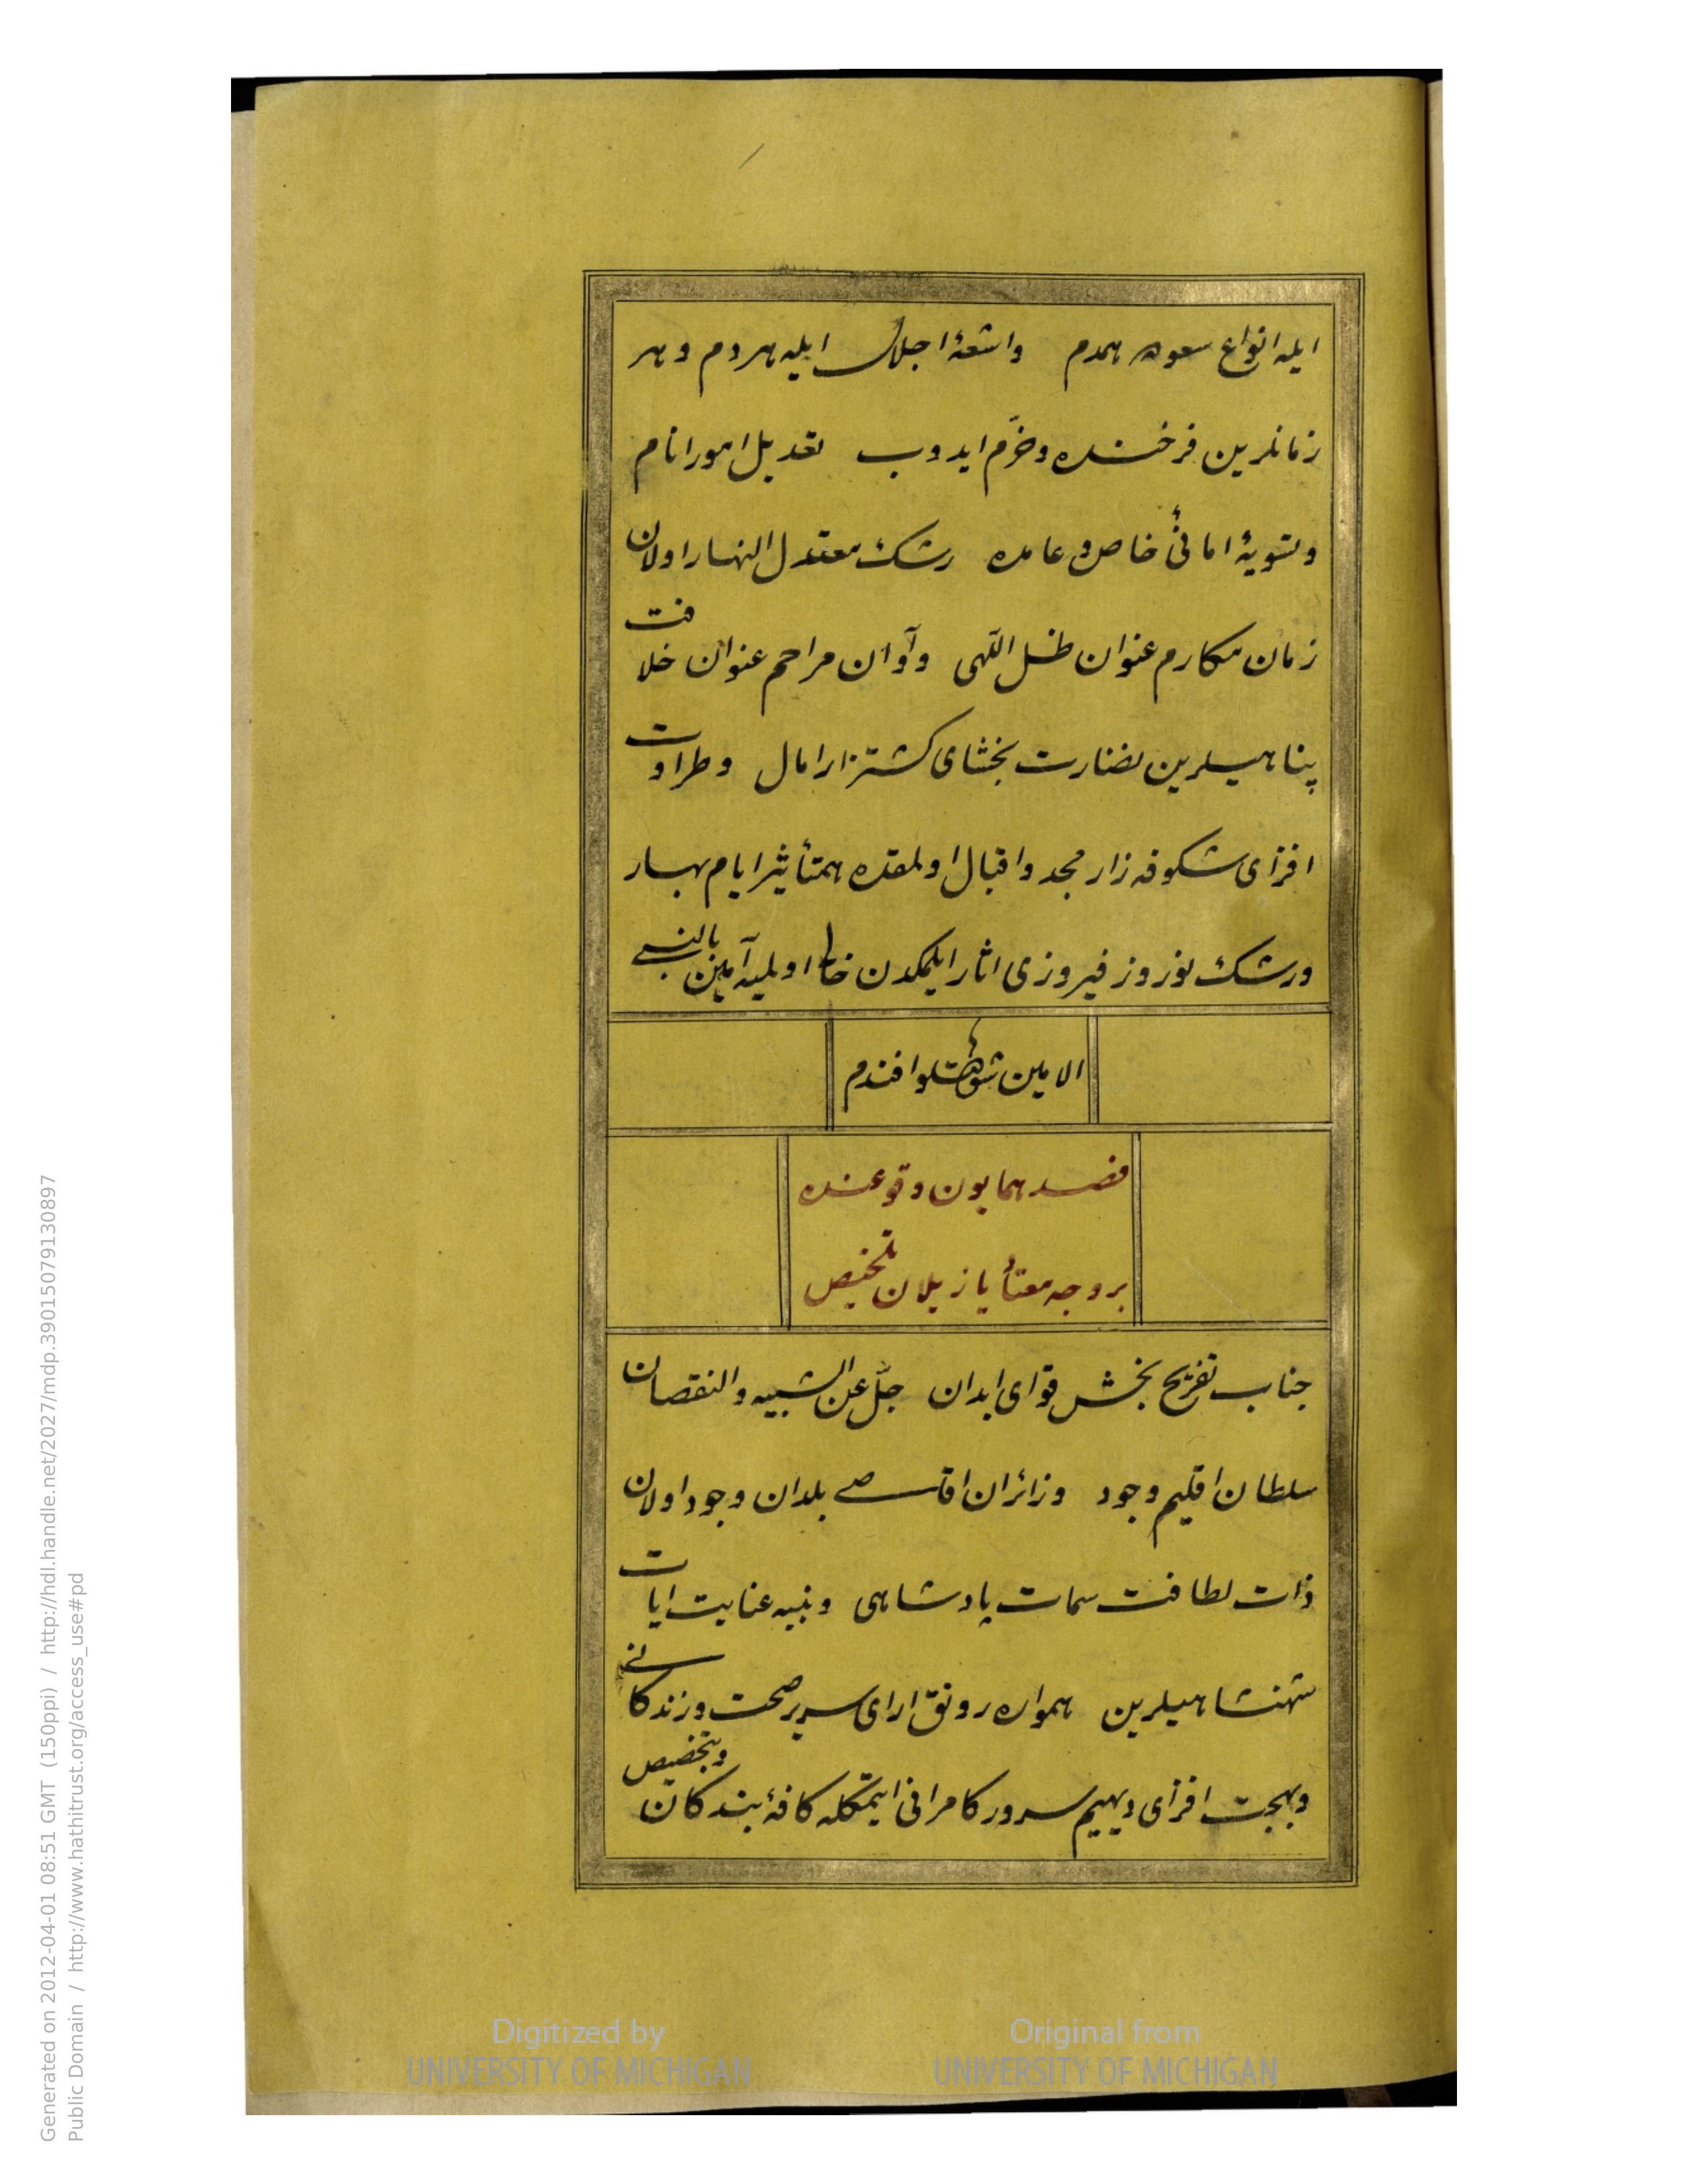 ایله انواع سعوده همدم واشعهٔ اجلال ایله هردم وهر
زمانلرین فرخنده وخرّم ایدوب تعدیل امور انام
وتسویهٔ امانیٔ خاص وعامده رشک معتدل النهار اولان
زمان مکارم عنوان ظل اللهی وآوان مراحم عنوان خلافت
پناهیلرین نضارت بخشای کشتزار امال وطراوت
افزای شکوفه زار مجد واقبال اولمقده همتأثیر ایام بهار
ورشک نوروز فیروزی اثار ایلمکدن خالی اولمیه آمین بالنبی
الامین شوکتلو افندم
فصد همایون وقوعنده
بر وجه معتاد یازیلان تلخیص
جناب تفریح بخش قوای ابدان جلّ عن الشبیه والنقصان
سلطان اقلیم وجود وزائران اقاصی بلدان وجود اولان
ذات لطافت سمات پادشاهی وبنیه عنایت ایات
شهنشاهیلرین همواره رونق ارای سریر صحت وزندکانی
وبهجت افزای دیهیم سرور کامرانی ایتمکله کافهٔ بندکان وبتخصیص
Generated on 2012-04-01 08:51 GMT (150ppi) / http://hdl.handle.net/2027/mdp.39015079130897
Public Domain / http://www.hathitrust.org/access_use#pd
Digitized by
UNIVERSITY OF MICHIGAN
Original from
UNIVERSITY OF MICHIGAN